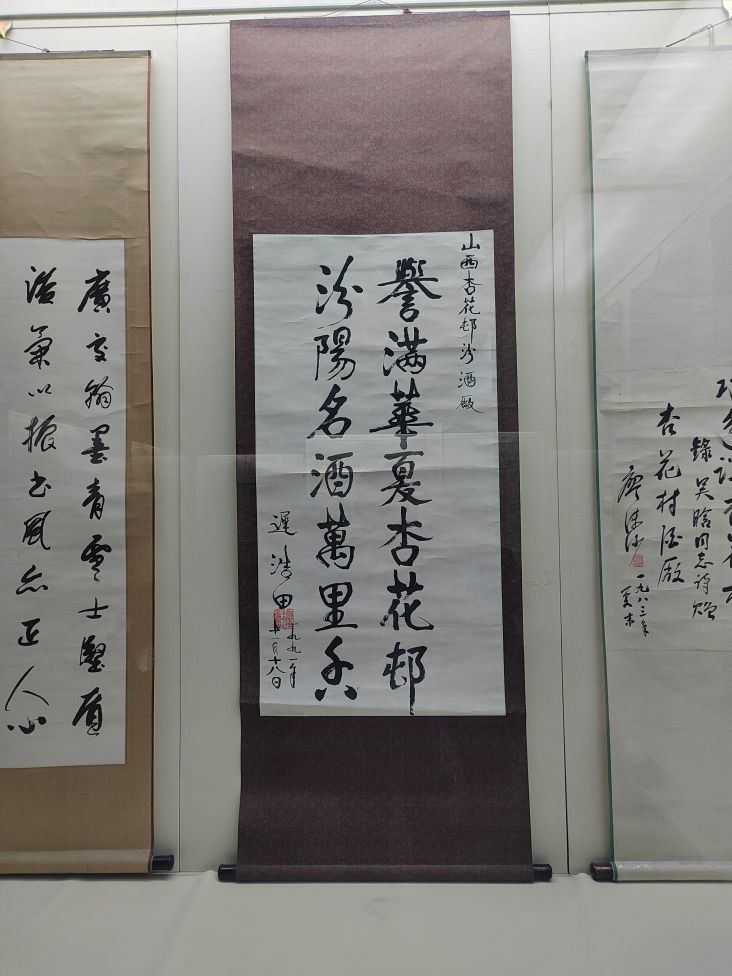 錄吳晗同志詩贈
杏花村酒廠
廖沫沙
一九八三年
夏末
山西杏花邨汾酒廠
譽滿華夏杏花邨
汾陽名酒萬里香
遲浩田
一九九一年
十一月十八日
廣交翰墨青雲士堅
以振書風亦正人心